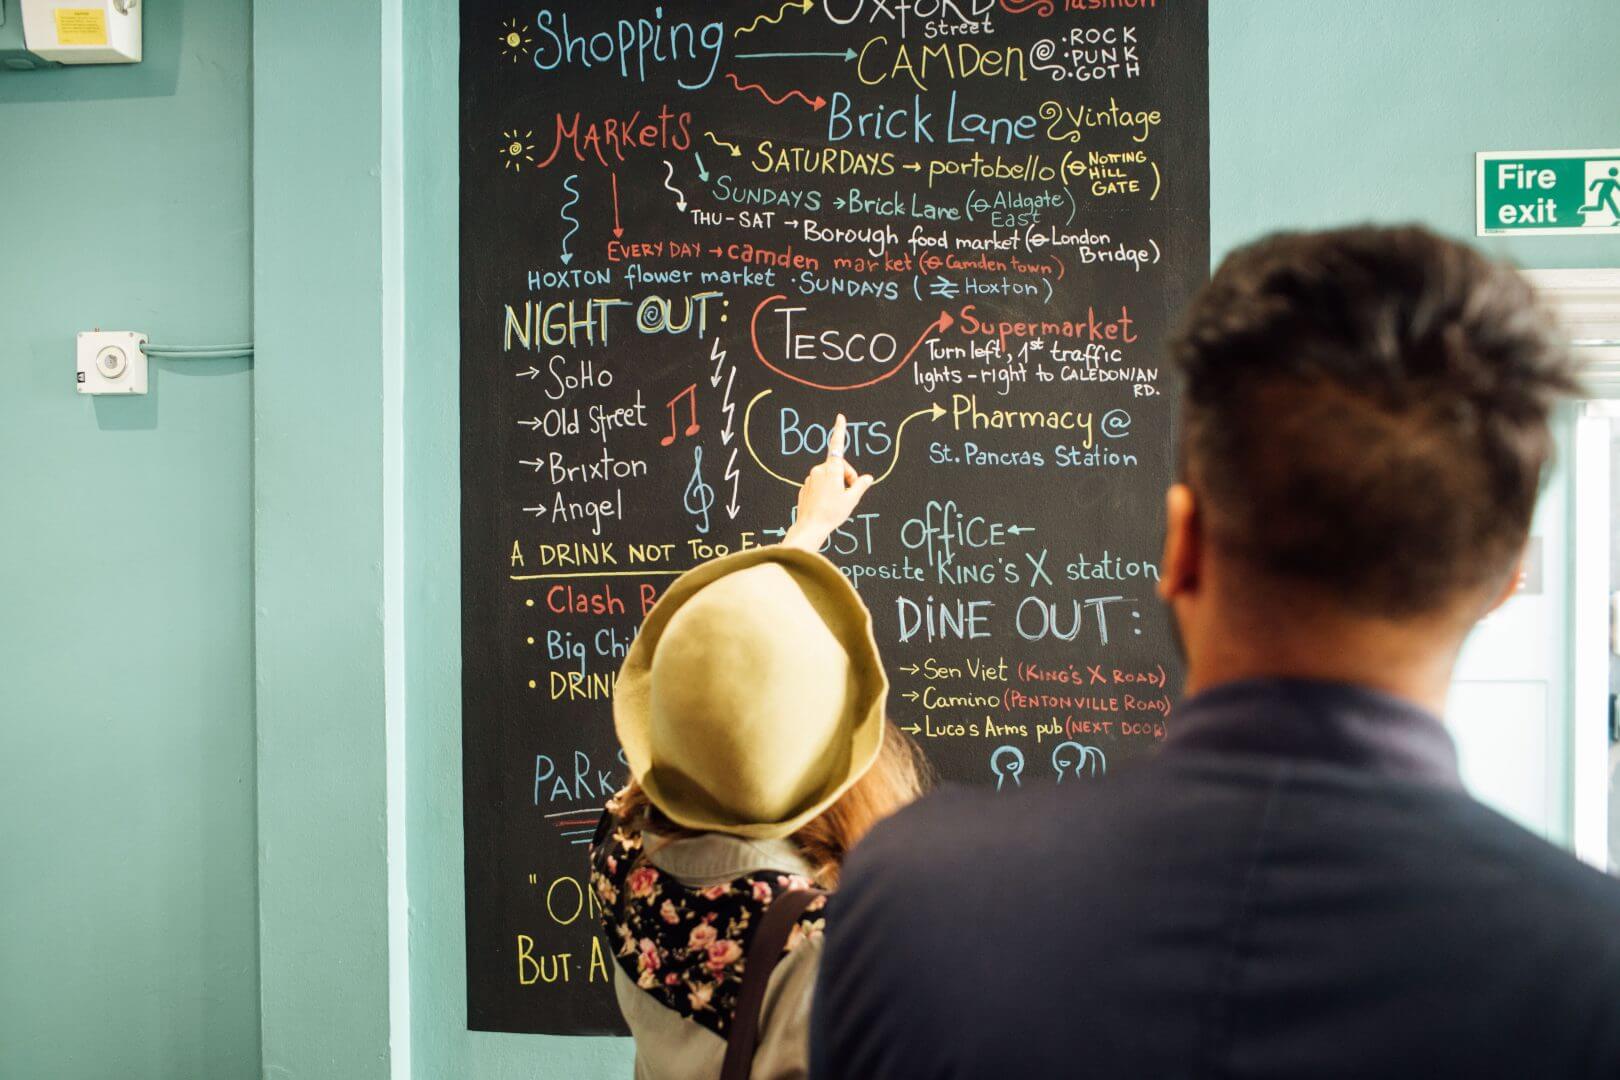 Shopping
OXFORD Street fashion
CAMDen @ ·ROCK ·PUNK ·GOTH
Brick Lane Vintage
MARKetS
SATURDAYS → portobello (NOTTING HILL GATE)
SUNDAYS → Brick Lane (Aldgate East)
THU-SAT → Borough food market (London Bridge)
EVERY DAY → camden market (Camden town)
HOXTON flower market · SUNDAYS (Hoxton)
NIGHT OUT:
→ SoHo
→ Old Street
→ Brixton
→ Angel
TESCO
Supermarket
Turn left, 1st traffic
lights - right to CALEDONIAN
RD.
BOOTS
Pharmacy @
St. Pancras Station
OFFICE ←
KING'S X station
A DRINK NOT TOO
• Clash
• Big
DINE OUT:
→ Sen Viet (KING'S X ROAD)
→ Camino (PENTONVILLE ROAD)
→ Lucas Arms pub (NEXT DOOR)
BUT A
Fire
exit